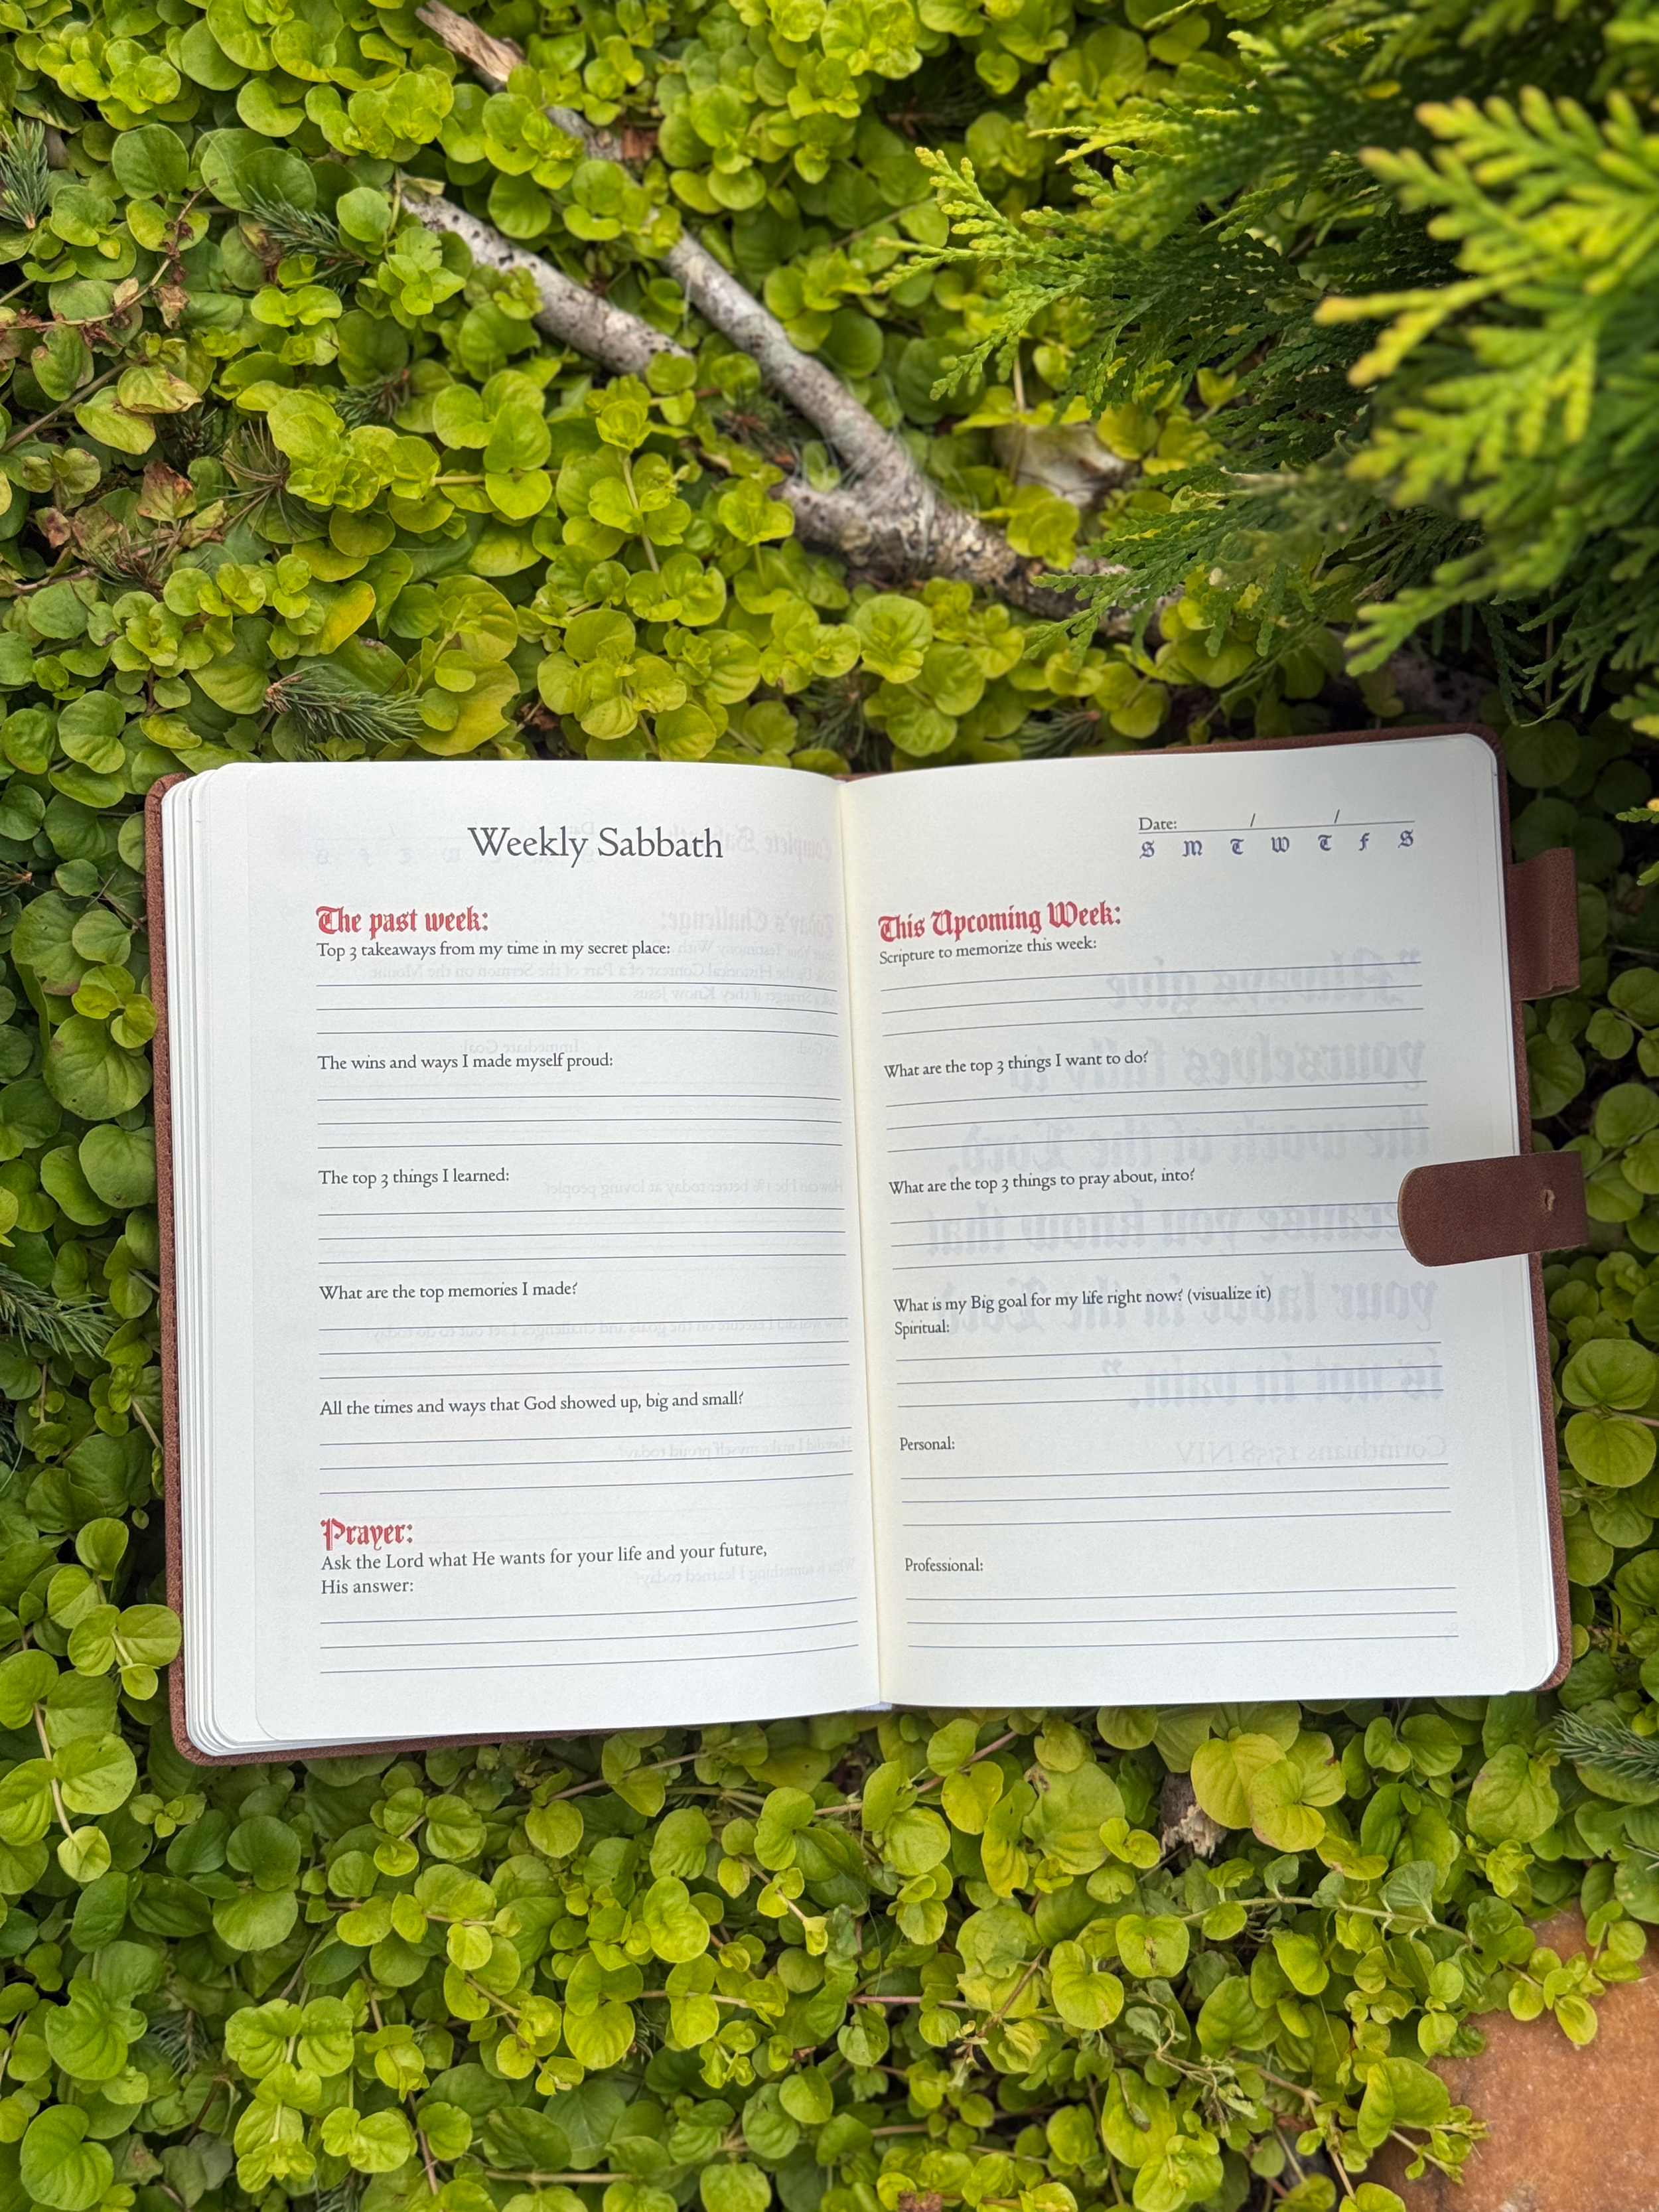 Weekly Sabbath
The past week:
Top 3 takeaways from my time in my secret place:
The wins and ways I made myself proud:
The top 3 things I learned:
What are the top memories I made?
All the times and ways that God showed up, big and small?
Prayer:
Ask the Lord what He wants for your life and your future,
His answer:
Date: / /
S M T W T F S
This Upcoming Week:
Scripture to memorize this week:
What are the top 3 things I want to do?
What are the top 3 things to pray about, into?
What is my Big goal for my life right now? (visualize it)
Spiritual:
Personal:
Professional:
"Always give
yourselves fully to
the work of the Lord,
because you know that
your labor in the Lord
is not in vain."
Corinthians 15:58 NIV